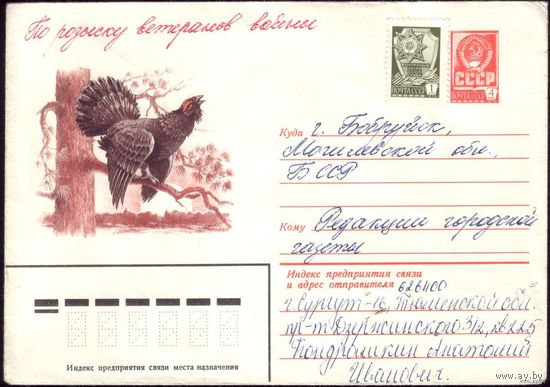 По розыску ветеранов войны
ПОЧТА СССР 1
СССР
ПОЧТА СССР 4
Куда г. Бобруйск,
Могилевской обл.,
БССР
Кому Редакции городской
газеты
Индекс предприятия связи
и адрес отправителя 626400
г. Сургут-16, Тюменской обл.
пр-т Дзержинского 3/2, кв 225
Кондрашкин Анатолий
Иванович.
Индекс предприятия связи места назначения
www.ay.by